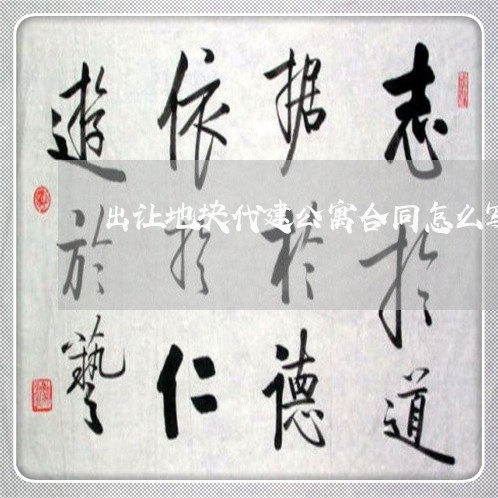 志於道
据於德
依於仁
遊於藝
出让地块代建公寓合同怎么